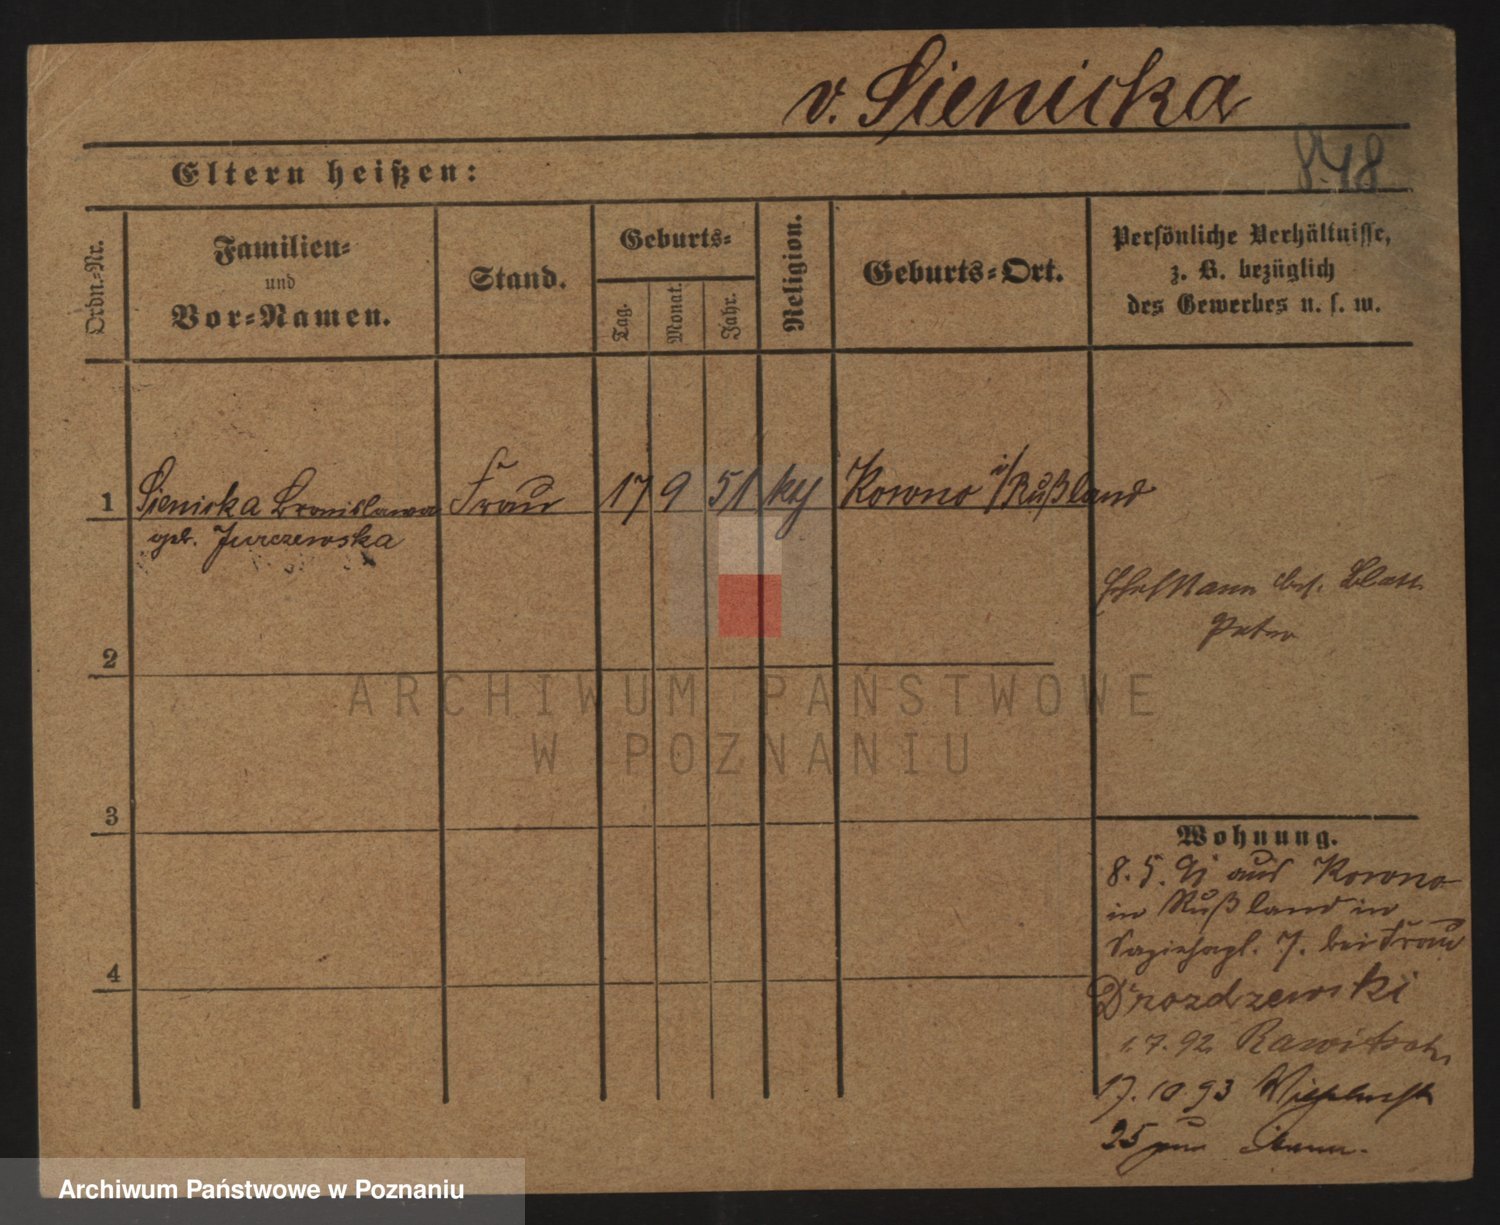 v. Sienicka
848
Eltern heißen:
Ordn.-Nr.
Familien-
und
Vor-Namen.
Stand.
Geburts-
Tag.
Monat.
Jahr.
Religion.
Geburts-Ort.
Persönliche Verhältnisse,
z. B. bezüglich
des Gewerbes u. s. w.
1 Sienicka Bronislawa Frau 17 9 51 kg Kowno i/Rußland
geb. Jurczewska
Ehemann bes. Blatt
Peter
2
3
4
Wohnung.
8. 5. 91 aus Kowno
in Rußland in
7. bei Frau
Drozdzewski
1.7.92 Rawitsch
17. 10 93 Wilhelmstr
25 zum Mann.
ARCHIWUM PAŃSTWOWE
W POZNANIU
Archiwum Państwowe w Poznaniu